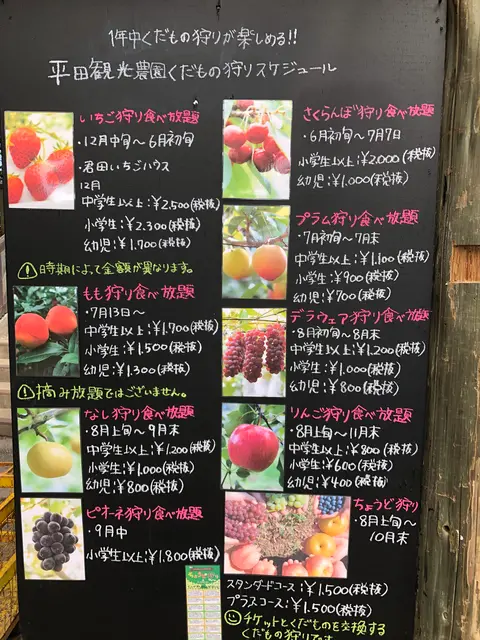 1年中くだもの狩りが楽しめる!!
平田観光農園くだもの狩りスケジュール
いちご狩り食べ放題
・12月中旬～6月初旬
・君田いちごハウス
12月
中学生以上:¥2.500(税抜)
小学生:¥2.300(税抜)
幼児:¥1.700(税抜)
!時期によって金額が異なります。
もも狩り食べ放題
・7月13日～
中学生以上:¥1.700(税抜)
小学生:¥1.500(税抜)
幼児:¥1.300(税抜)
!摘み放題ではございません。
なし狩り食べ放題
・8月上旬～9月末
中学生以上:¥1.200(税抜)
小学生:¥1.000(税抜)
幼児:¥800(税抜)
ピオーネ狩り食べ放題
・9月中
小学生以上:¥1.800(税抜)
さくらんぼ狩り食べ放題
・6月初旬～7月7日
小学生以上:¥2.000(税抜)
幼児:¥1.000(税抜)
プラム狩り食べ放題
・7月初旬～7月末
中学生以上:¥1.100(税抜)
小学生:¥900(税抜)
幼児:¥700(税抜)
デラウェア狩り食べ放題
・8月初旬～8月末
中学生以上:¥1.200(税抜)
小学生:¥1.000(税抜)
幼児:¥800(税抜)
りんご狩り食べ放題
・8月上旬～11月末
中学生以上:¥800(税抜)
小学生:¥600(税抜)
幼児:¥400(税抜)
ちょうど狩り
・8月上旬～
10月末
スタンダードコース:¥1.500(税抜)
プラスコース:¥1.500(税抜)
チケットとくだものを交換する
くだもの狩りです